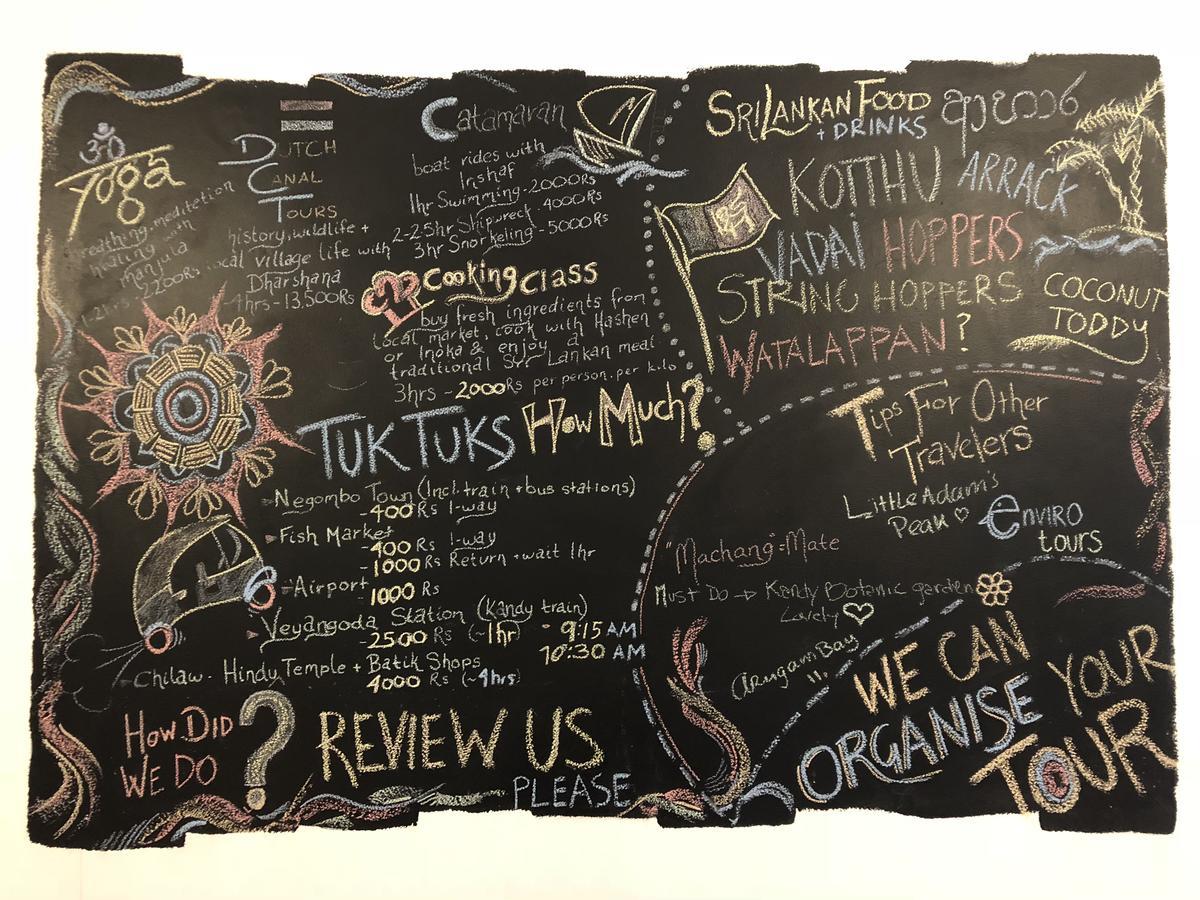 ॐ
Yoga
breathing, meditation
healing with
manjula
2hrs 2200Rs
DUTCH
CANAL
TOURS
history, wildlife +
local village life with
Dharshana
4hrs - 13,500Rs
Catamaran
boat rides with
Irshaf
1hr Swimming - 2000Rs
2-2.5hr Shipwreck - 4000Rs
3hr Snorkeling - 5000Rs
Cooking Class
buy fresh ingredients from
local market, cook with Hashen
or Inoka & enjoy a
traditional Sri Lankan meal
3hrs - 2000Rs per person. per kilo
TUK TUKS How Much?
Negombo Town (Incl. train + bus stations)
-400 Rs 1-way
Fish Market
-400 Rs 1-way
-1000 Rs Return + wait 1hr
Airport
1000 Rs
Veyangoda Station (Kandy train)
-2500 Rs (~1hr) - 9:15 AM
10:30 AM
Chilaw - Hindy Temple + Batik Shops
4000 Rs (~4hrs)
HOW DID
WE DO ?
REVIEW US
PLEASE
SRI LANKAN FOOD
+ DRINKS
KOTTHU ARRACK
VADAI HOPPERS
STRING HOPPERS
WATALAPPAN?
COCONUT
TODDY
Tips For Other
Travelers
Little Adam's
Peak ♡
enviro
tours
"Machang" = Mate
Must Do → Kandy Botanic garden
Lovely ♡
Arugam Bay
WE CAN
ORGANISE YOUR
TOUR